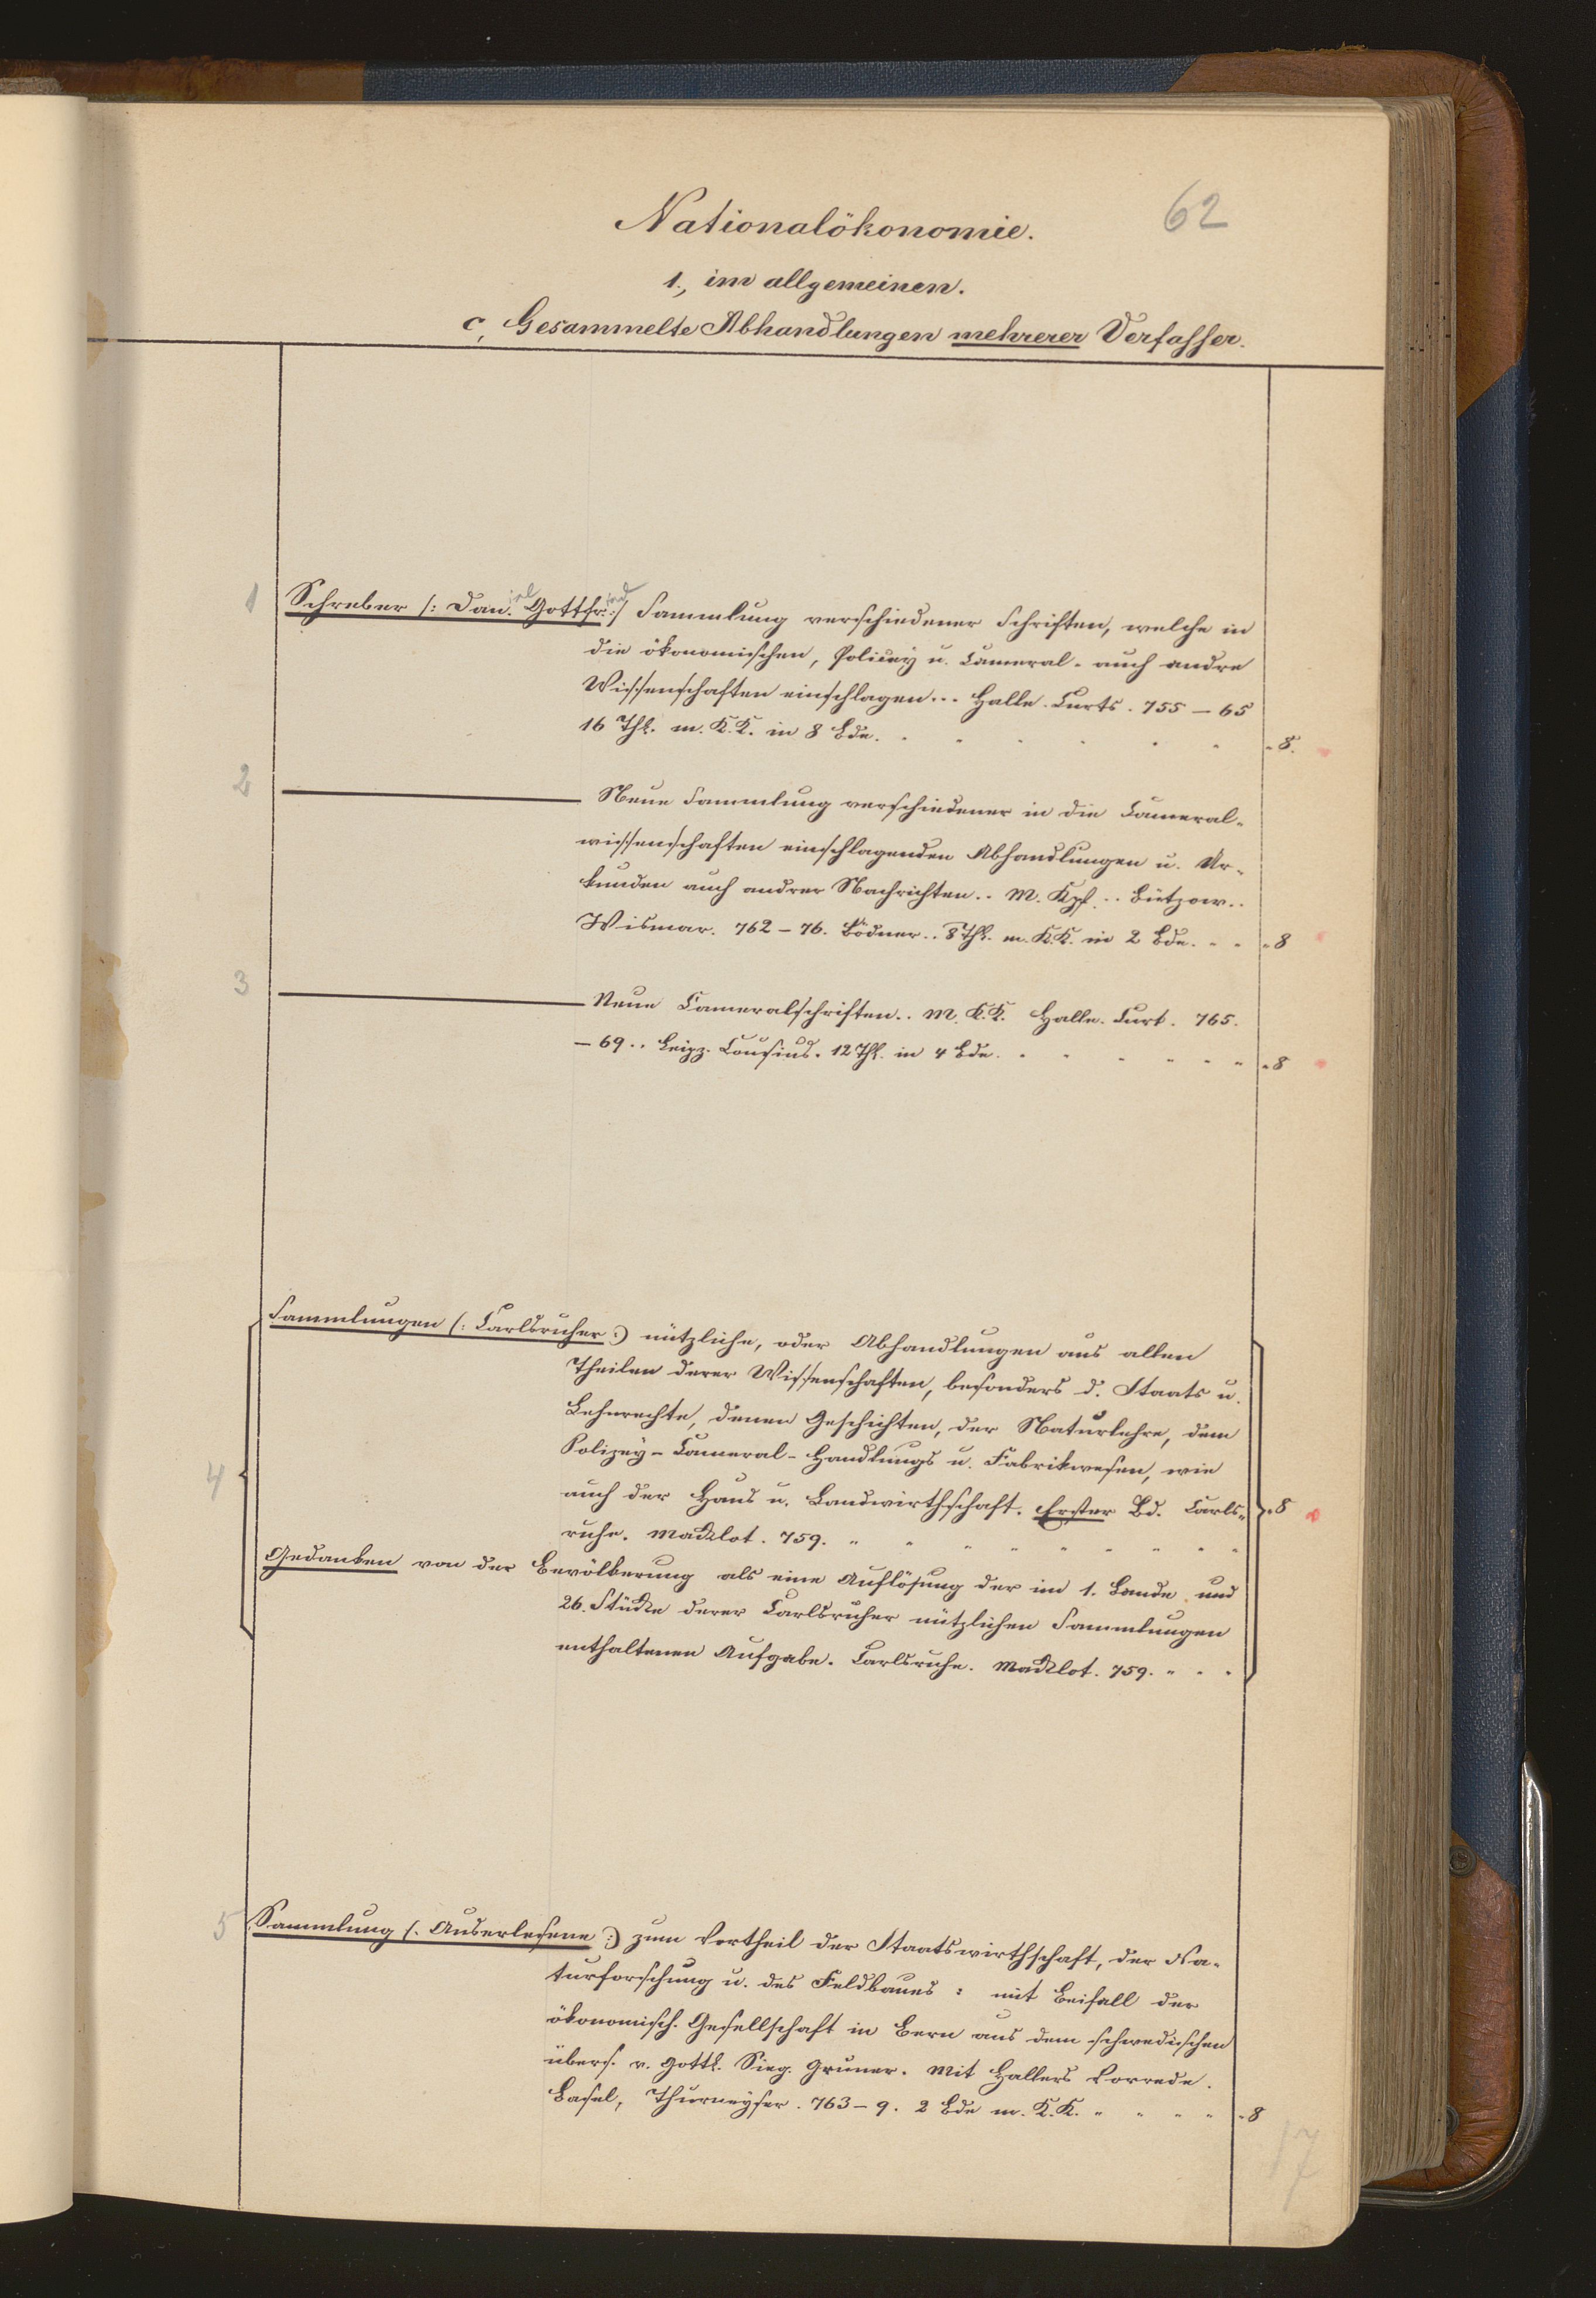 62
Nationalökonomie.
1., im allgemeinen.
c, Gesammelte Abhandlungen mehrerer Verfasser.
1 Schreber /: Dan.iel Gottfr.ied :/ Sammlung verschiedener Schriften, welche in
die ökonomischen, Policey u. Cameral- auch andre
Wissenschaften einschlagen... Halle. Curts. 755 – 65
16 Thl. m. K.K. in 8 Bde. . . . . . . „ 8.
2 ——— Neue Sammlung verschiedener in die Cameral-
wissenschaften einschlagenden Abhandlungen u. Ur-
kunden auch andrer Nachrichten.. M. Kpf... Bützow..
Wismar. 762 – 76. Bödner.. 8 Thl. m. K.K. in 2 Bde. „ „ „ 8
3 ——— Neue Cameralschriften.. M. K.K. Halle. Curt. 765.
– 69.. Leipz. Crusius. 12 Thl. in 4 Bde. „ „ „ „ „ „ 8
4 Sammlungen (: Carlsruher :) nützliche, oder Abhandlungen aus allen
Theilen derer Wissenschaften, besonders d. Staats u.
Lehnrechte, denen Geschichten, der Naturlehre, dem
Polizey- Cameral- Handlungs u. Fabrikwesen, wie
auch der Haus u. Landwirthschaft. Erster Bd. Carls- „ 8
ruhe. Macklot. 759. „ „ „ „ „ „ „ „ „
Gedanken von der Bevölkerung als eine Auflösung der im 1. Bande und
26. Stücke derer Carlsruher nützlichen Sammlungen
enthaltenen Aufgabe. Carlsruhe. Macklot. 759. „ „ „
5 Sammlung (: Auserlesene :) zum Vortheil der Staatswirthschaft, der Na-
turforschung u. des Feldbaues: mit Beifall der
ökonomisch. Gesellschaft in Bern aus dem schwedischen
übers. v. Gottl. Sieg. Gruner. Mit Hallers Vorrede.
Basel, Thurneyser. 763 – 9. 2 Bde m. K.K. „ „ „ „ „ 8
17